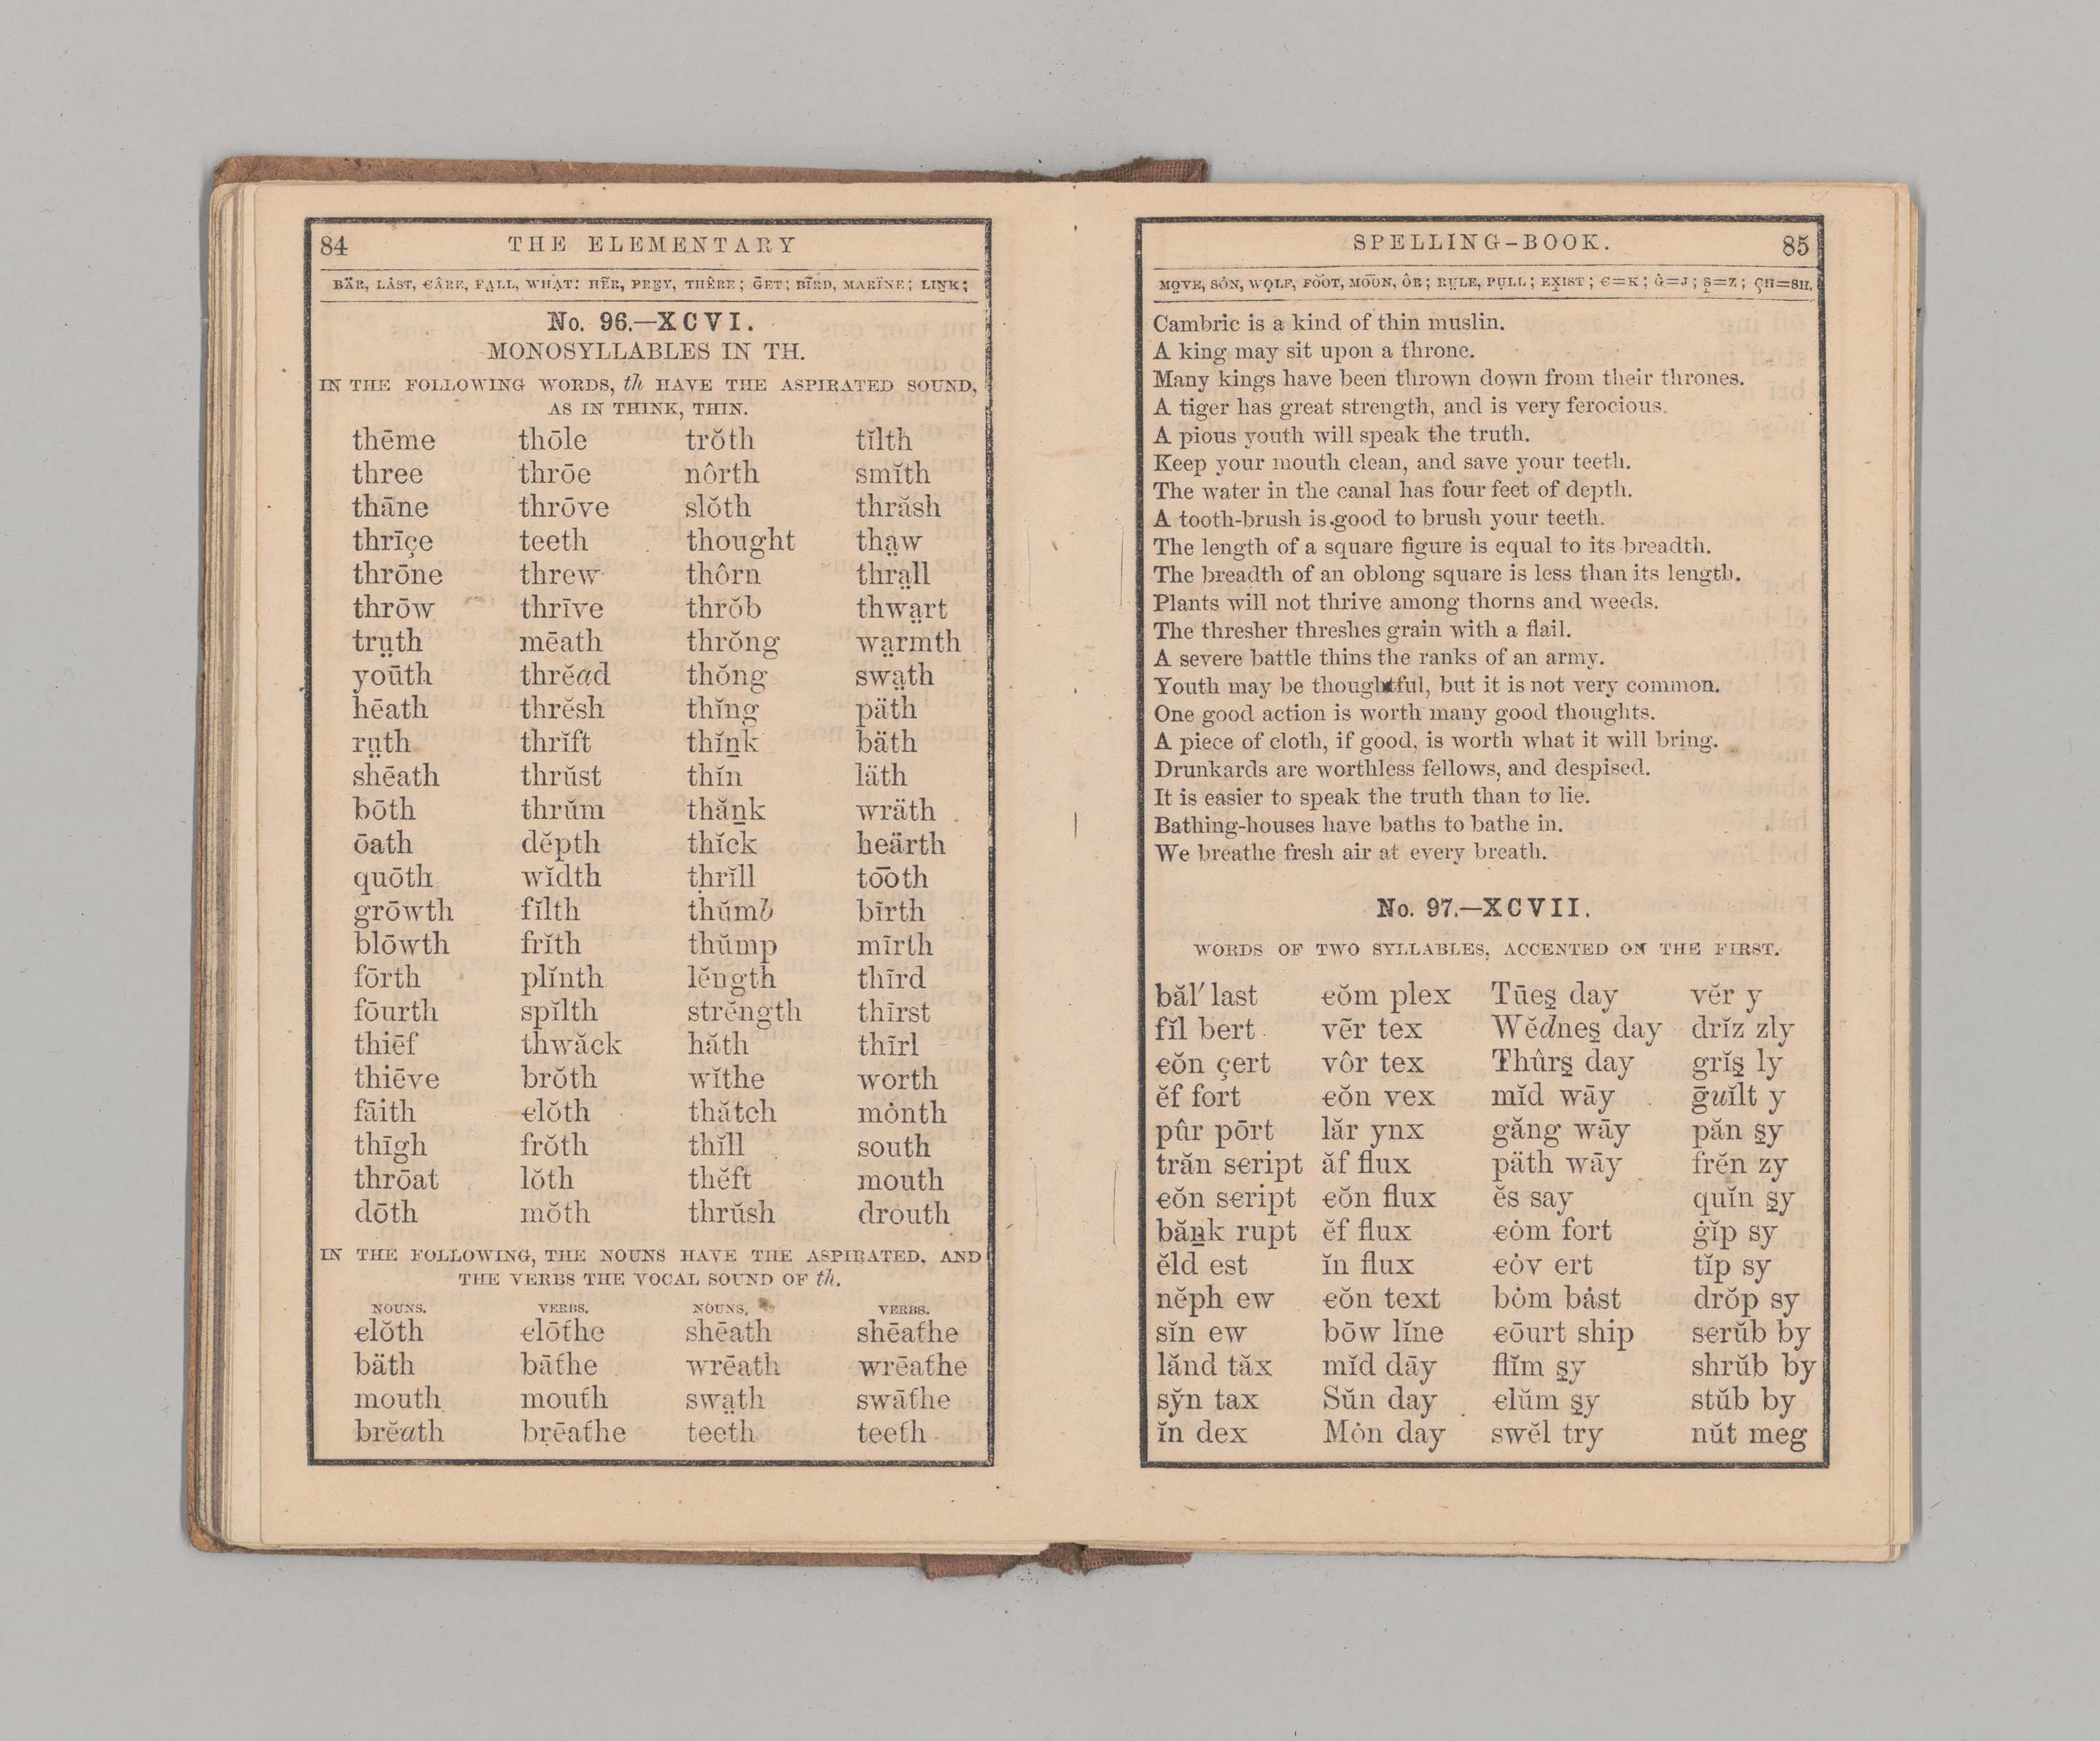 84 THE ELEMENTARY
BÄR, LȦST, ЄÂRE, FA̤LL, WHA̤T: HẼR, PREY̱, THÊRE; ḠET; BĨRD, MARÏNE; LIN̲K;
No. 96.—XCVI.
MONOSYLLABLES IN TH.
IN THE FOLLOWING WORDS, th HAVE THE ASPIRATED SOUND,
AS IN THINK, THIN.
thēme thōle trŏth tĭlth
three thrōe nôrth smĭth
thāne thrōve slŏth thrăsh
thrīçe teeth thought tha̤w
thrōne threw thôrn thra̤ll
thrōw thrīve thrŏb thwa̤rt
trṳth mēath thrŏng wa̤rmth
yoūth thrĕad thŏng swa̤th
hēath thrĕsh thĭng päth
rṳth thrĭft thĭn̲k bäth
shēath thrŭst thĭn läth
bōth thrŭm thăn̲k wräth
ōath dĕpth thĭck heärth
quōth wĭdth thrĭll to͞oth
grōwth fĭlth thŭmb bĩrth
blōwth frĭth thŭmp mĩrth
fōrth plĭnth lĕngth thĩrd
fōurth spĭlth strĕngth thĩrst
thiēf thwăck hăth thĩrl
thiēve brŏth wĭthe worth
fāith єlŏth thătch mȯnth
thīgh frŏth thĭll south
thrōat lŏth thĕft mouth
dōth mŏth thrŭsh drouth
IN THE FOLLOWING, THE NOUNS HAVE THE ASPIRATED, AND
THE VERBS THE VOCAL SOUND OF th.
NOUNS. VERBS. NOUNS. VERBS.
єlŏth єlōthe shēath shēathe
bäth bāthe wrēath wrēathe
mouth mouth swa̤th swāthe
brĕath brēathe teeth teeth
SPELLING-BOOK. 85
MO̤VE, SȮN, WO̤LF, FO͝OT, MO͞ON, ÔR; RṲLE, PṲLL; EX̱IST; Є=K; Ġ=J; S̱=Z; ÇH=SH.
Cambric is a kind of thin muslin.
A king may sit upon a throne.
Many kings have been thrown down from their thrones.
A tiger has great strength, and is very ferocious.
A pious youth will speak the truth.
Keep your mouth clean, and save your teeth.
The water in the canal has four feet of depth.
A tooth-brush is good to brush your teeth.
The length of a square figure is equal to its breadth.
The breadth of an oblong square is less than its length.
Plants will not thrive among thorns and weeds.
The thresher threshes grain with a flail.
A severe battle thins the ranks of an army.
Youth may be thoughtful, but it is not very common.
One good action is worth many good thoughts.
A piece of cloth, if good, is worth what it will bring.
Drunkards are worthless fellows, and despised.
It is easier to speak the truth than to lie.
Bathing-houses have baths to bathe in.
We breathe fresh air at every breath.
No. 97.—XCVII.
WORDS OF TWO SYLLABLES, ACCENTED ON THE FIRST.
băl′ last єŏm plex Tūes̱ day vĕr y
fĭl bert vẽr tex Wĕdnes̱ day drĭz zly
єŏn çert vôr tex Thûrs̱ day grĭs̱ ly
ĕf fort єŏn vex mĭd wāy ḡuĭlt y
pûr pōrt lăr ynx găng wāy păn s̱y
trăn sєript ăf flux päth wāy frĕn zy
єŏn sєript єŏn flux ĕs say quĭn s̱y
băn̲k rupt ĕf flux єȯm fort ġĭp sy
ĕld est ĭn flux єȯv ert tĭp sy
nĕph ew єŏn text bȯm bȧst drŏp sy
sĭn ew bōw lĭne єōurt ship sєrŭb by
lănd tăx mĭd dāy flĭm s̱y shrŭb by
sy̆n tax Sŭn day єlŭm s̱y stŭb by
ĭn dex Mȯn day swĕl try nŭt meg